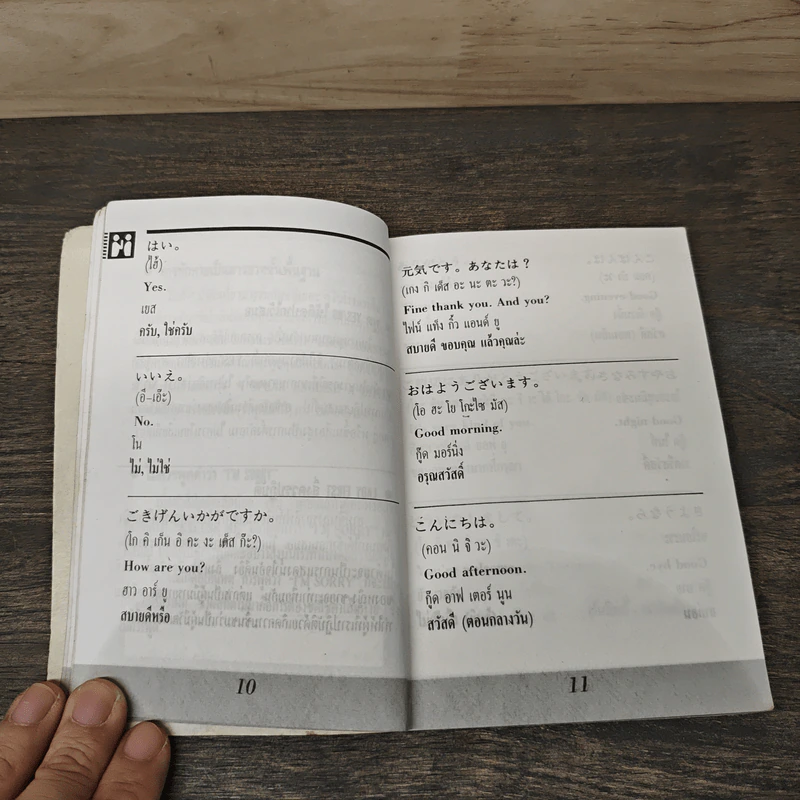 はい。
(ไฮ้)
Yes.
เยส
ครับ, ใช่ครับ
いいえ。
(อี-เอ๊ะ)
No.
โน
ไม่, ไม่ใช่
ごきげんいかがですか。
(โก คิ เก็น อิ คะ งะ เด็ส ก๊ะ?)
How are you?
ฮาว อาร์ ยู
สบายดีหรือ
10
元気です。あなたは?
(เกง กิ เด็ส อะ นะ ตะ วะ?)
Fine thank you. And you?
ไฟน์ แท็ง กิ้ว แอนด์ ยู
สบายดี ขอบคุณ แล้วคุณล่ะ
おはようございます。
(โอ ฮะ โย โกะไซ มัส)
Good morning.
กู๊ด มอร์นิ่ง
อรุณสวัสดิ์
こんにちは。
(คอน นิ จิ วะ)
Good afternoon.
กู๊ด อาฟ เตอร์ นูน
สวัสดี (ตอนกลางวัน)
11